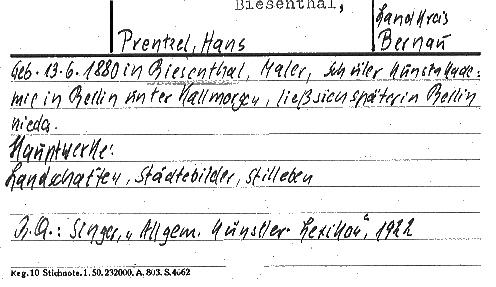 Biesenthal,
Landkreis
Bernau
Prentzel, Hans
Geb. 13.6.1880 in Biesenthal, Maler, Schüler Kunstakade-
mie in Berlin unter Kallmorgen, ließ sich später in Berlin
nieder.
Hauptwerke:
Landschaften, Städtebilder, Stilleben
Singer, „Allgem. Künstler-Lexikon", 1922
Reg. 10 Stichnote. 1. 50. 232000. A. 803. S. 4662